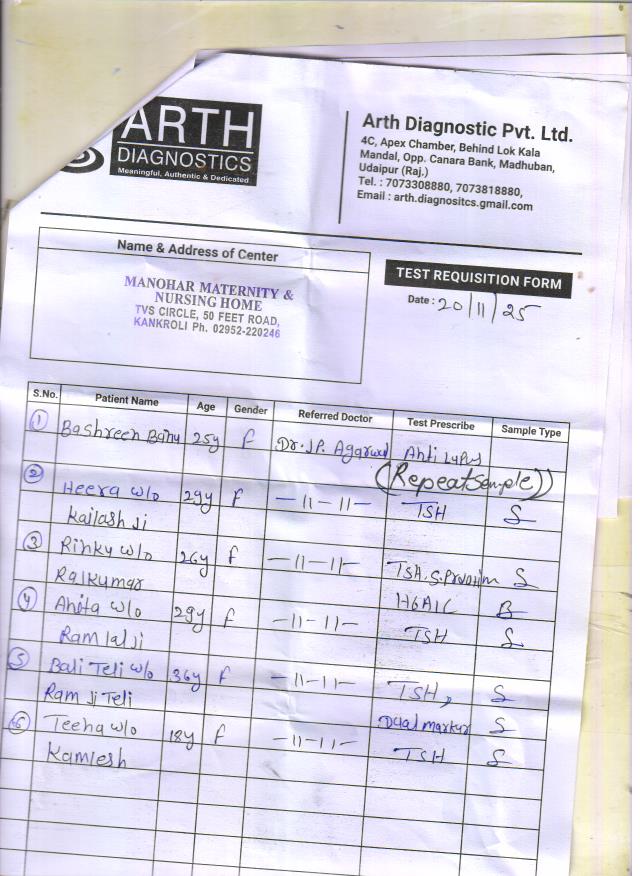 ARTH
DIAGNOSTICS
Meaningful, Authentic & Dedicated
Arth Diagnostic Pvt. Ltd.
4C, Apex Chamber, Behind Lok Kala
Mandal, Opp. Canara Bank, Madhuban,
Udaipur (Raj.)
Tel. : 7073308880, 7073818880,
Email : arth.diagnositcs.gmail.com
Name & Address of Center
MANOHAR MATERNITY &
NURSING HOME
TVS CIRCLE, 50 FEET ROAD,
KANKROLI Ph. 02952-220246
TEST REQUISITION FORM
Date : 20/11/25
S.No. Patient Name Age Gender Referred Doctor Test Prescribe Sample Type
1 Bashreen Banu 25y F Dr. J.P. Agarwal Anti Lupus
(Repeat sample))
2 Heera w/o 29y F -11-11- TSH S
Kailash Ji
3 Rinky w/o 26y F -11-11- TSH, S. S
Rajkumar HbA1C B
4 Anita w/o 29y F -11-11- TSH S
Ram lal Ji
5 Bali Teli w/o 36y F -11-11- TSH, S
Ram Ji Teli Dual markur S
6 Teena w/o 18y F -11-11- TSH S
Kamlesh